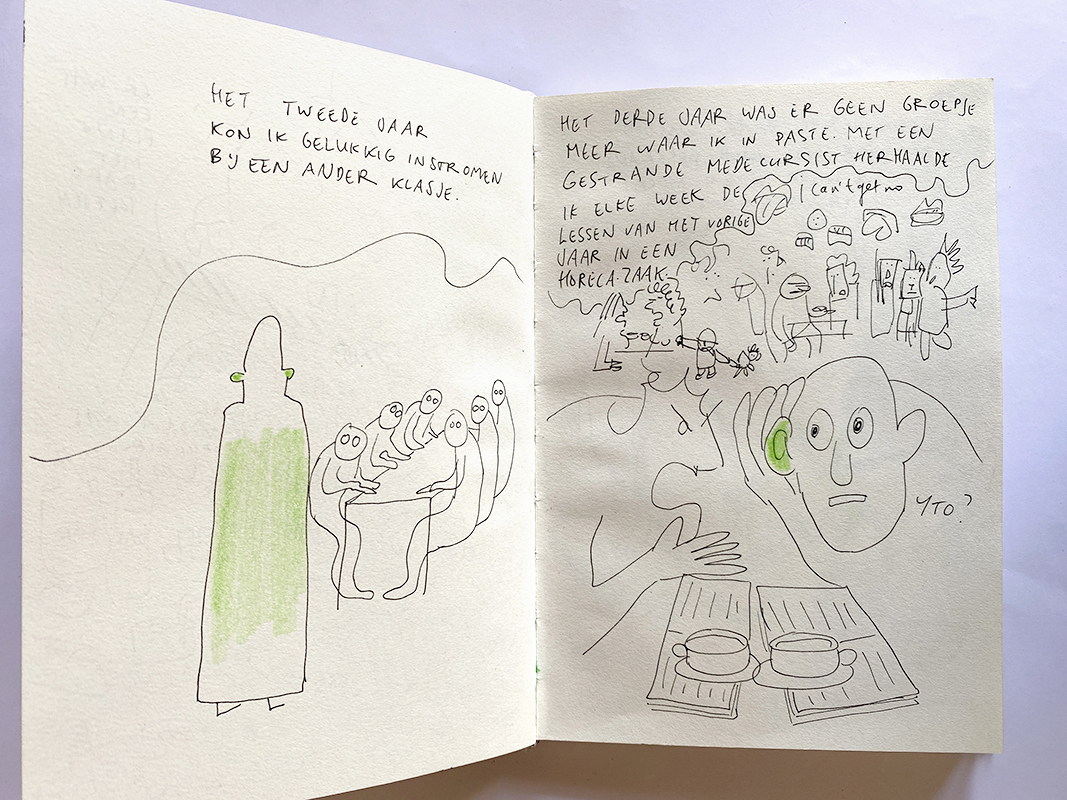 HET TWEEDE JAAR
KON IK GELUKKIG INSTROMEN
BIJ EEN ANDER KLASJE.
HET DERDE JAAR WAS ER GEEN GROEPJE
MEER WAAR IK IN PASTE. MET EEN
GESTRANDE MEDECURSIST HERHAALDE
IK ELKE WEEK DE
LESSEN VAN HET VORIGE
JAAR IN EEN
HORECA-ZAAK.
I can't get no
YTO?